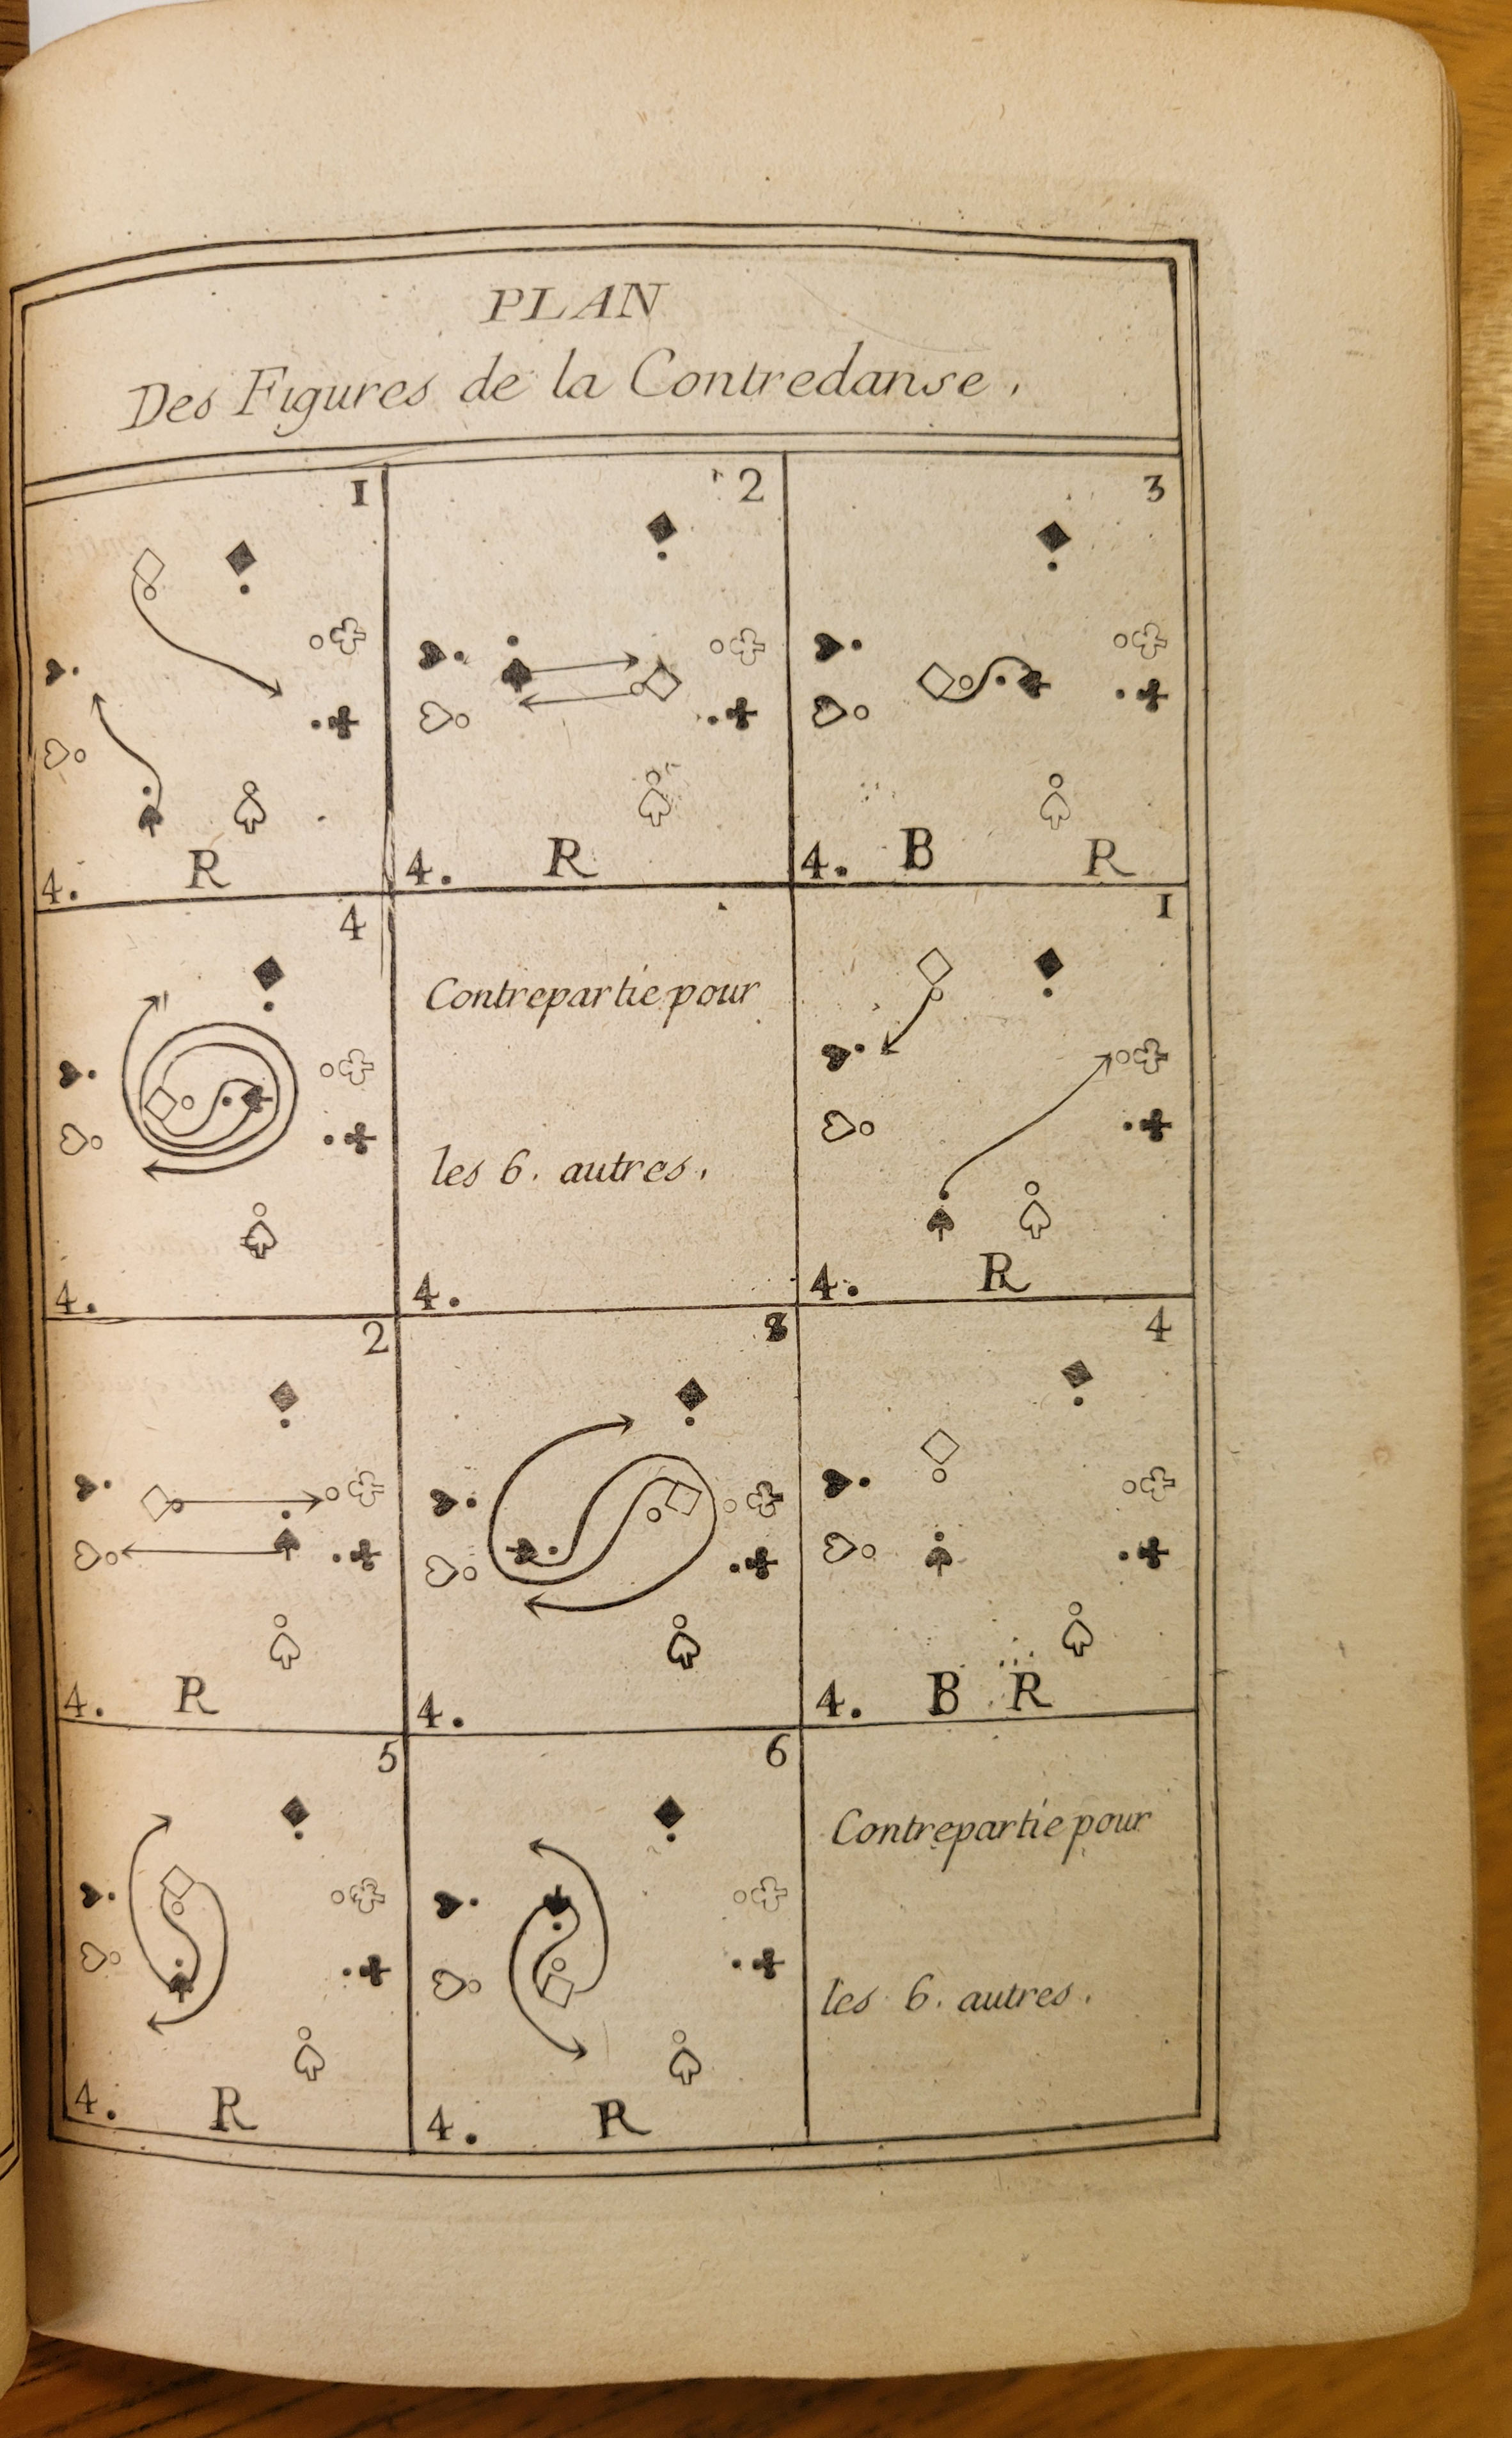 PLAN
Des Figures de la Contredanse.
1
4. R
2
4. R
3
4. B R
4
4.
Contrepartie pour
les 6. autres.
4.
1
4. R
2
4. R
3
4.
4
4. B R
5
4. R
6
4. R
Contrepartie pour
les 6. autres.